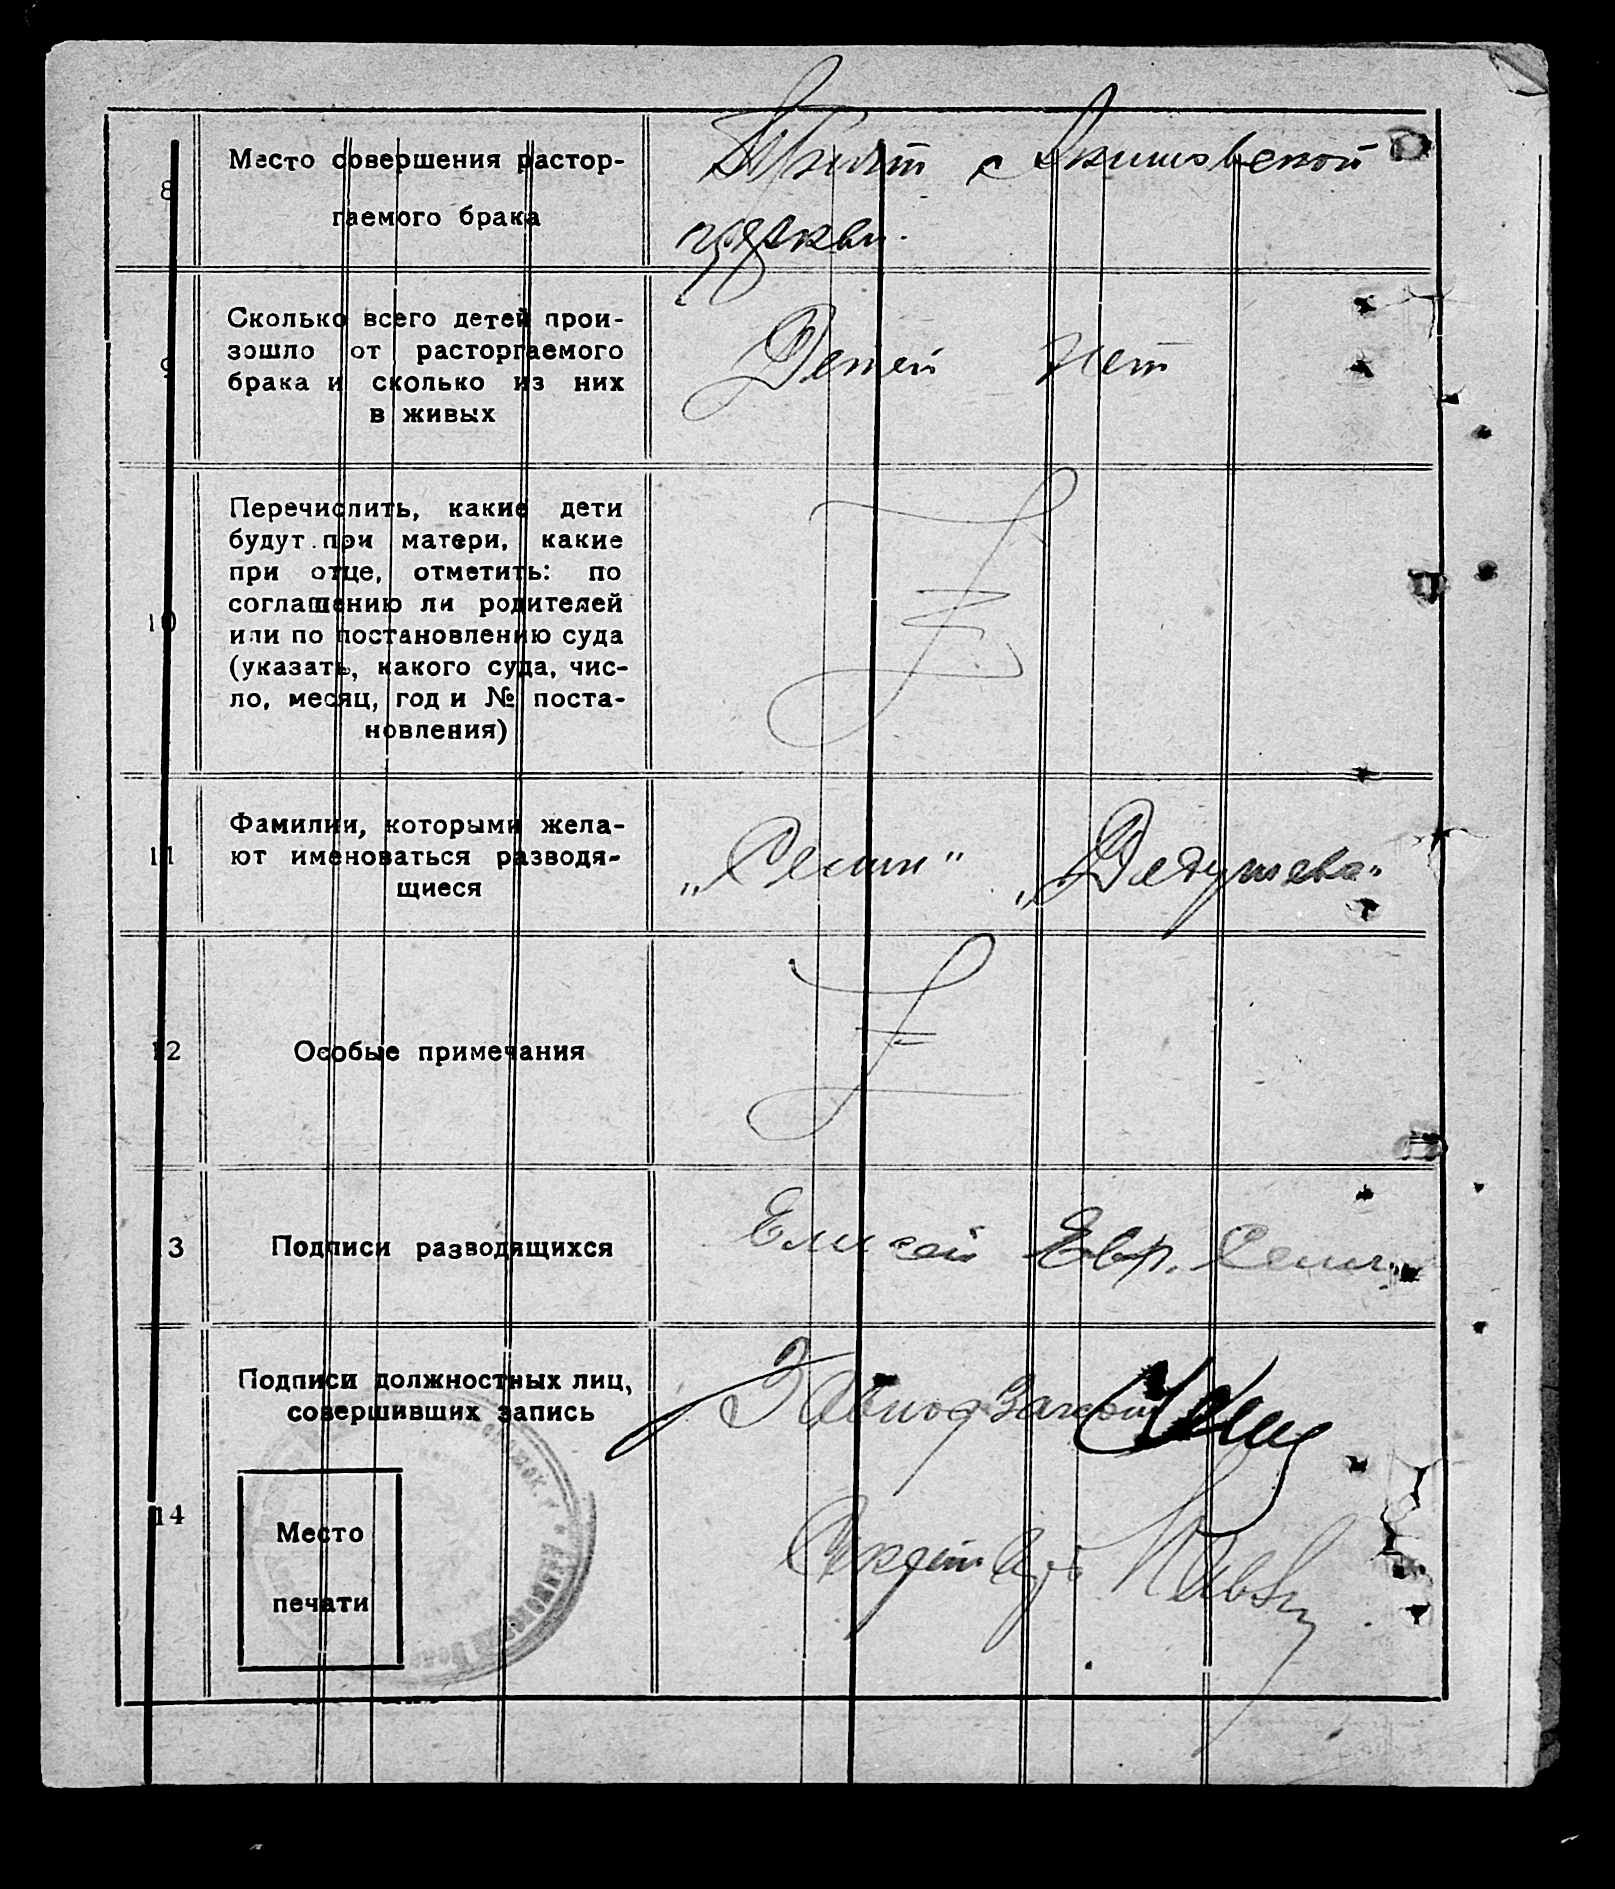 8
Место совершения растор-
гаемого брака
Причт
церкви.
9
Сколько всего детей прои-
зошло от расторгаемого
брака и сколько из них
в живых
Детей нет
10
Перечислить, какие дети
будут при матери, какие
при отце, отметить: по
соглашению ли родителей
или по постановлению суда
(указать, какого суда, чис-
ло, месяц, год и № поста-
новления)
11
Фамилии, которыми жела-
ют именоваться разводя-
щиеся
„Селин" „Дядушева"
12
Особые примечания
13
Подписи разводящихся
Елисей Евр. Селин
14
Подписи должностных лиц,
совершивших запись
Место
печати